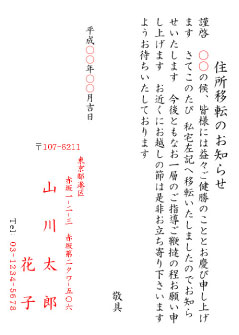 住所移転のお知らせ
謹啓　〇〇の候、皆様には益々ご健勝のこととお慶び申し上げ
ます　さてこのたび　私宅左記へ移転いたしましたのでお知ら
せいたします　今後ともなお一層のご指導ご鞭撻の程お願い申
し上げます　お近くにお越しの節は是非お立ち寄り下さいます
ようお待ちいたしております
敬具
平成〇〇年〇〇月吉日
〒107-8211
東京都港区
赤坂一-二-三　赤坂第二タワー五〇六
山川太郎
花子
Tel 03-1234-5678